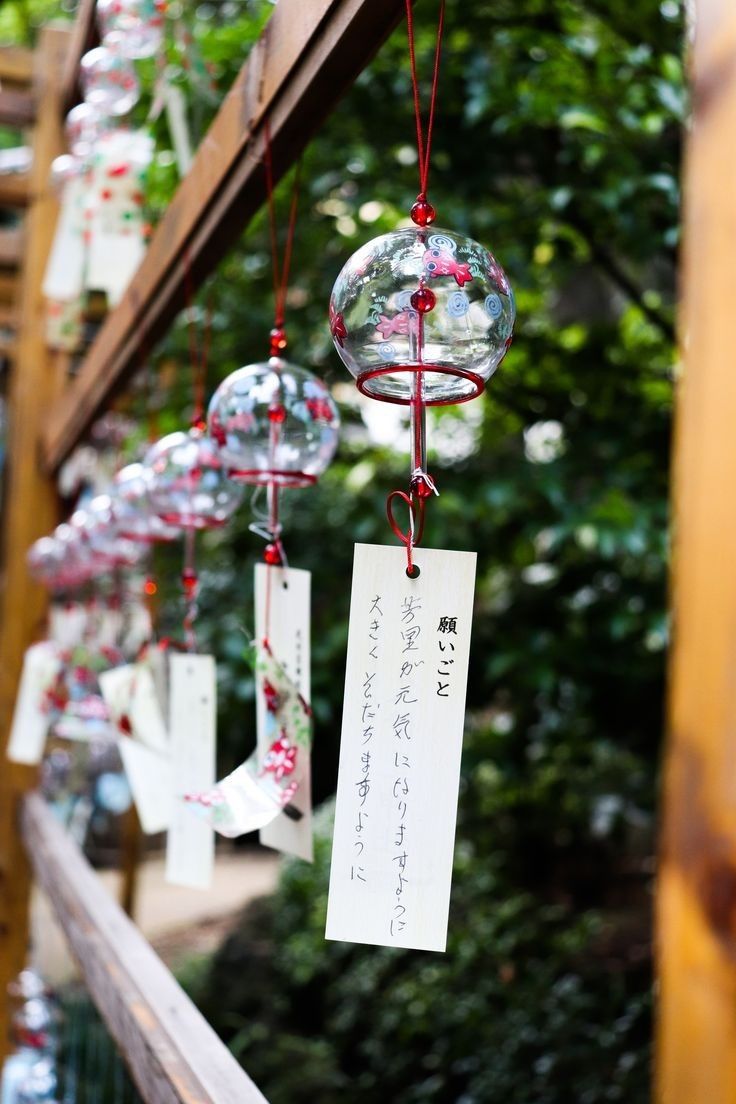 願いごと
芳里が元気になりますように
大きくそだちますように